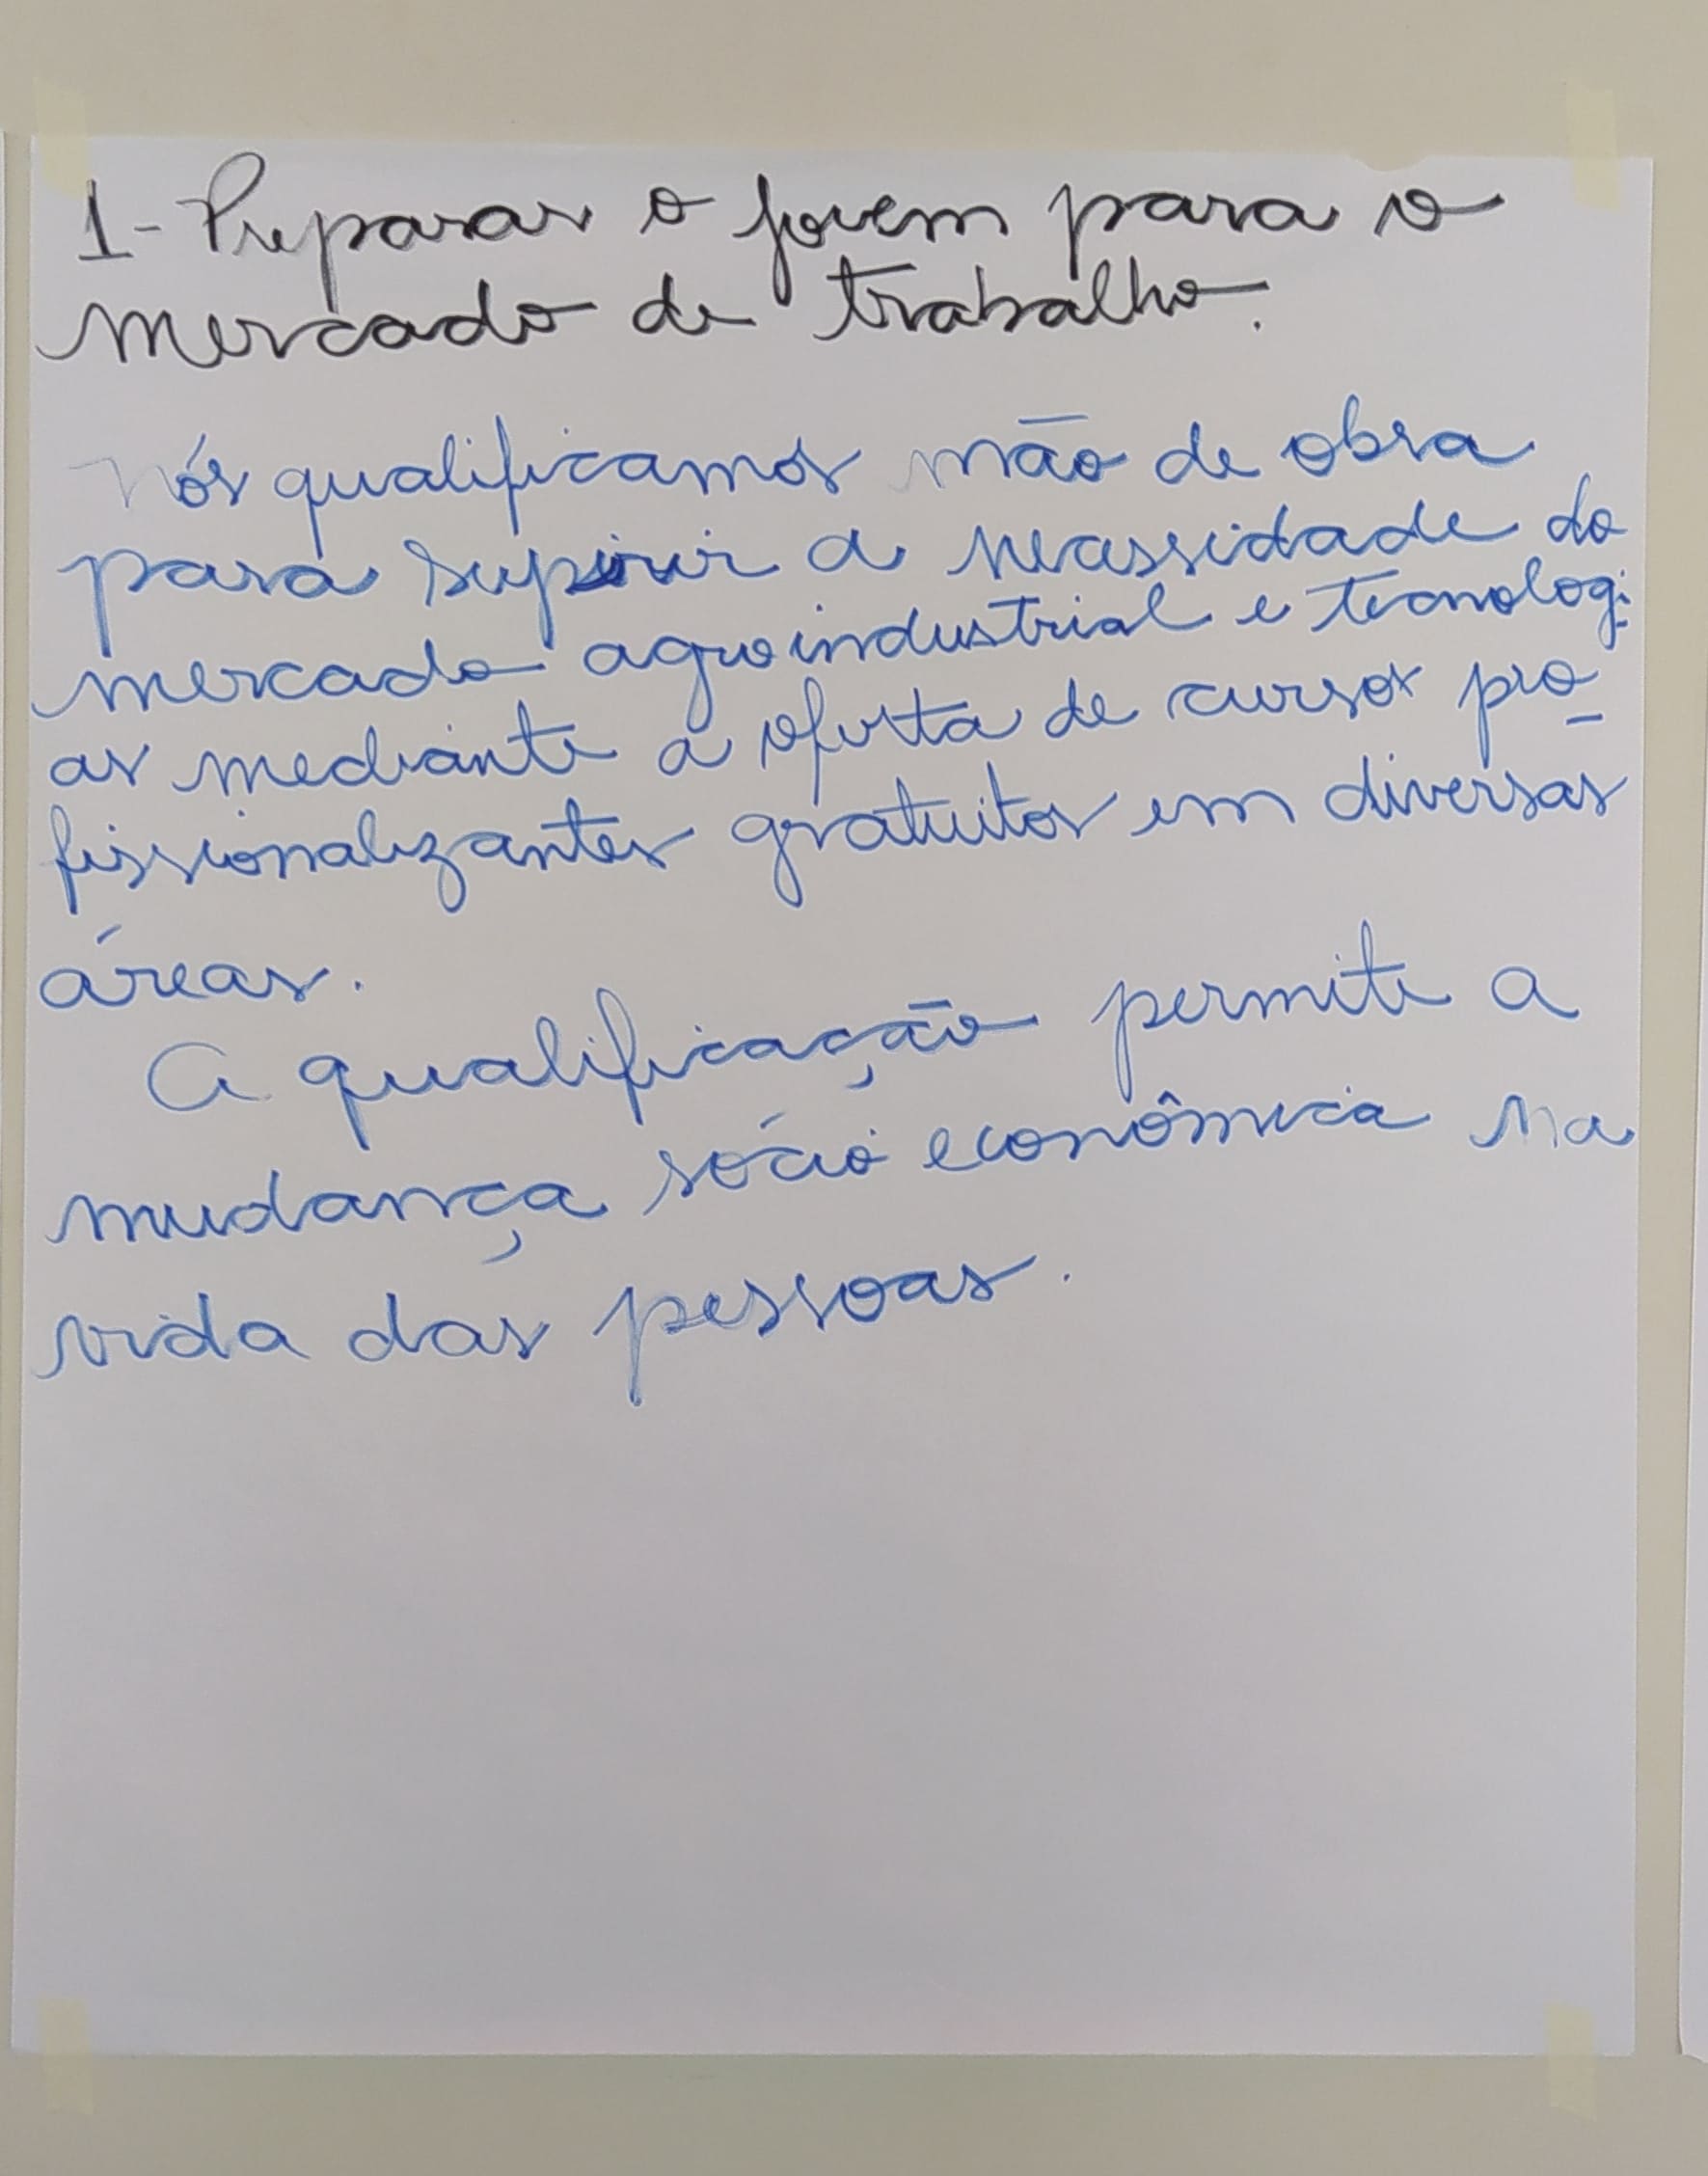 1- Preparar o jovem para o
mercado de trabalho.
Nós qualificamos mão de obra
para suprir a necessidade do
mercado agroindustrial e tecnologi
as mediante a oferta de cursos pro
fissionalizantes gratuitos em diversas
áreas.
A qualificação permite a
mudança sócio econômica na
vida das pessoas.